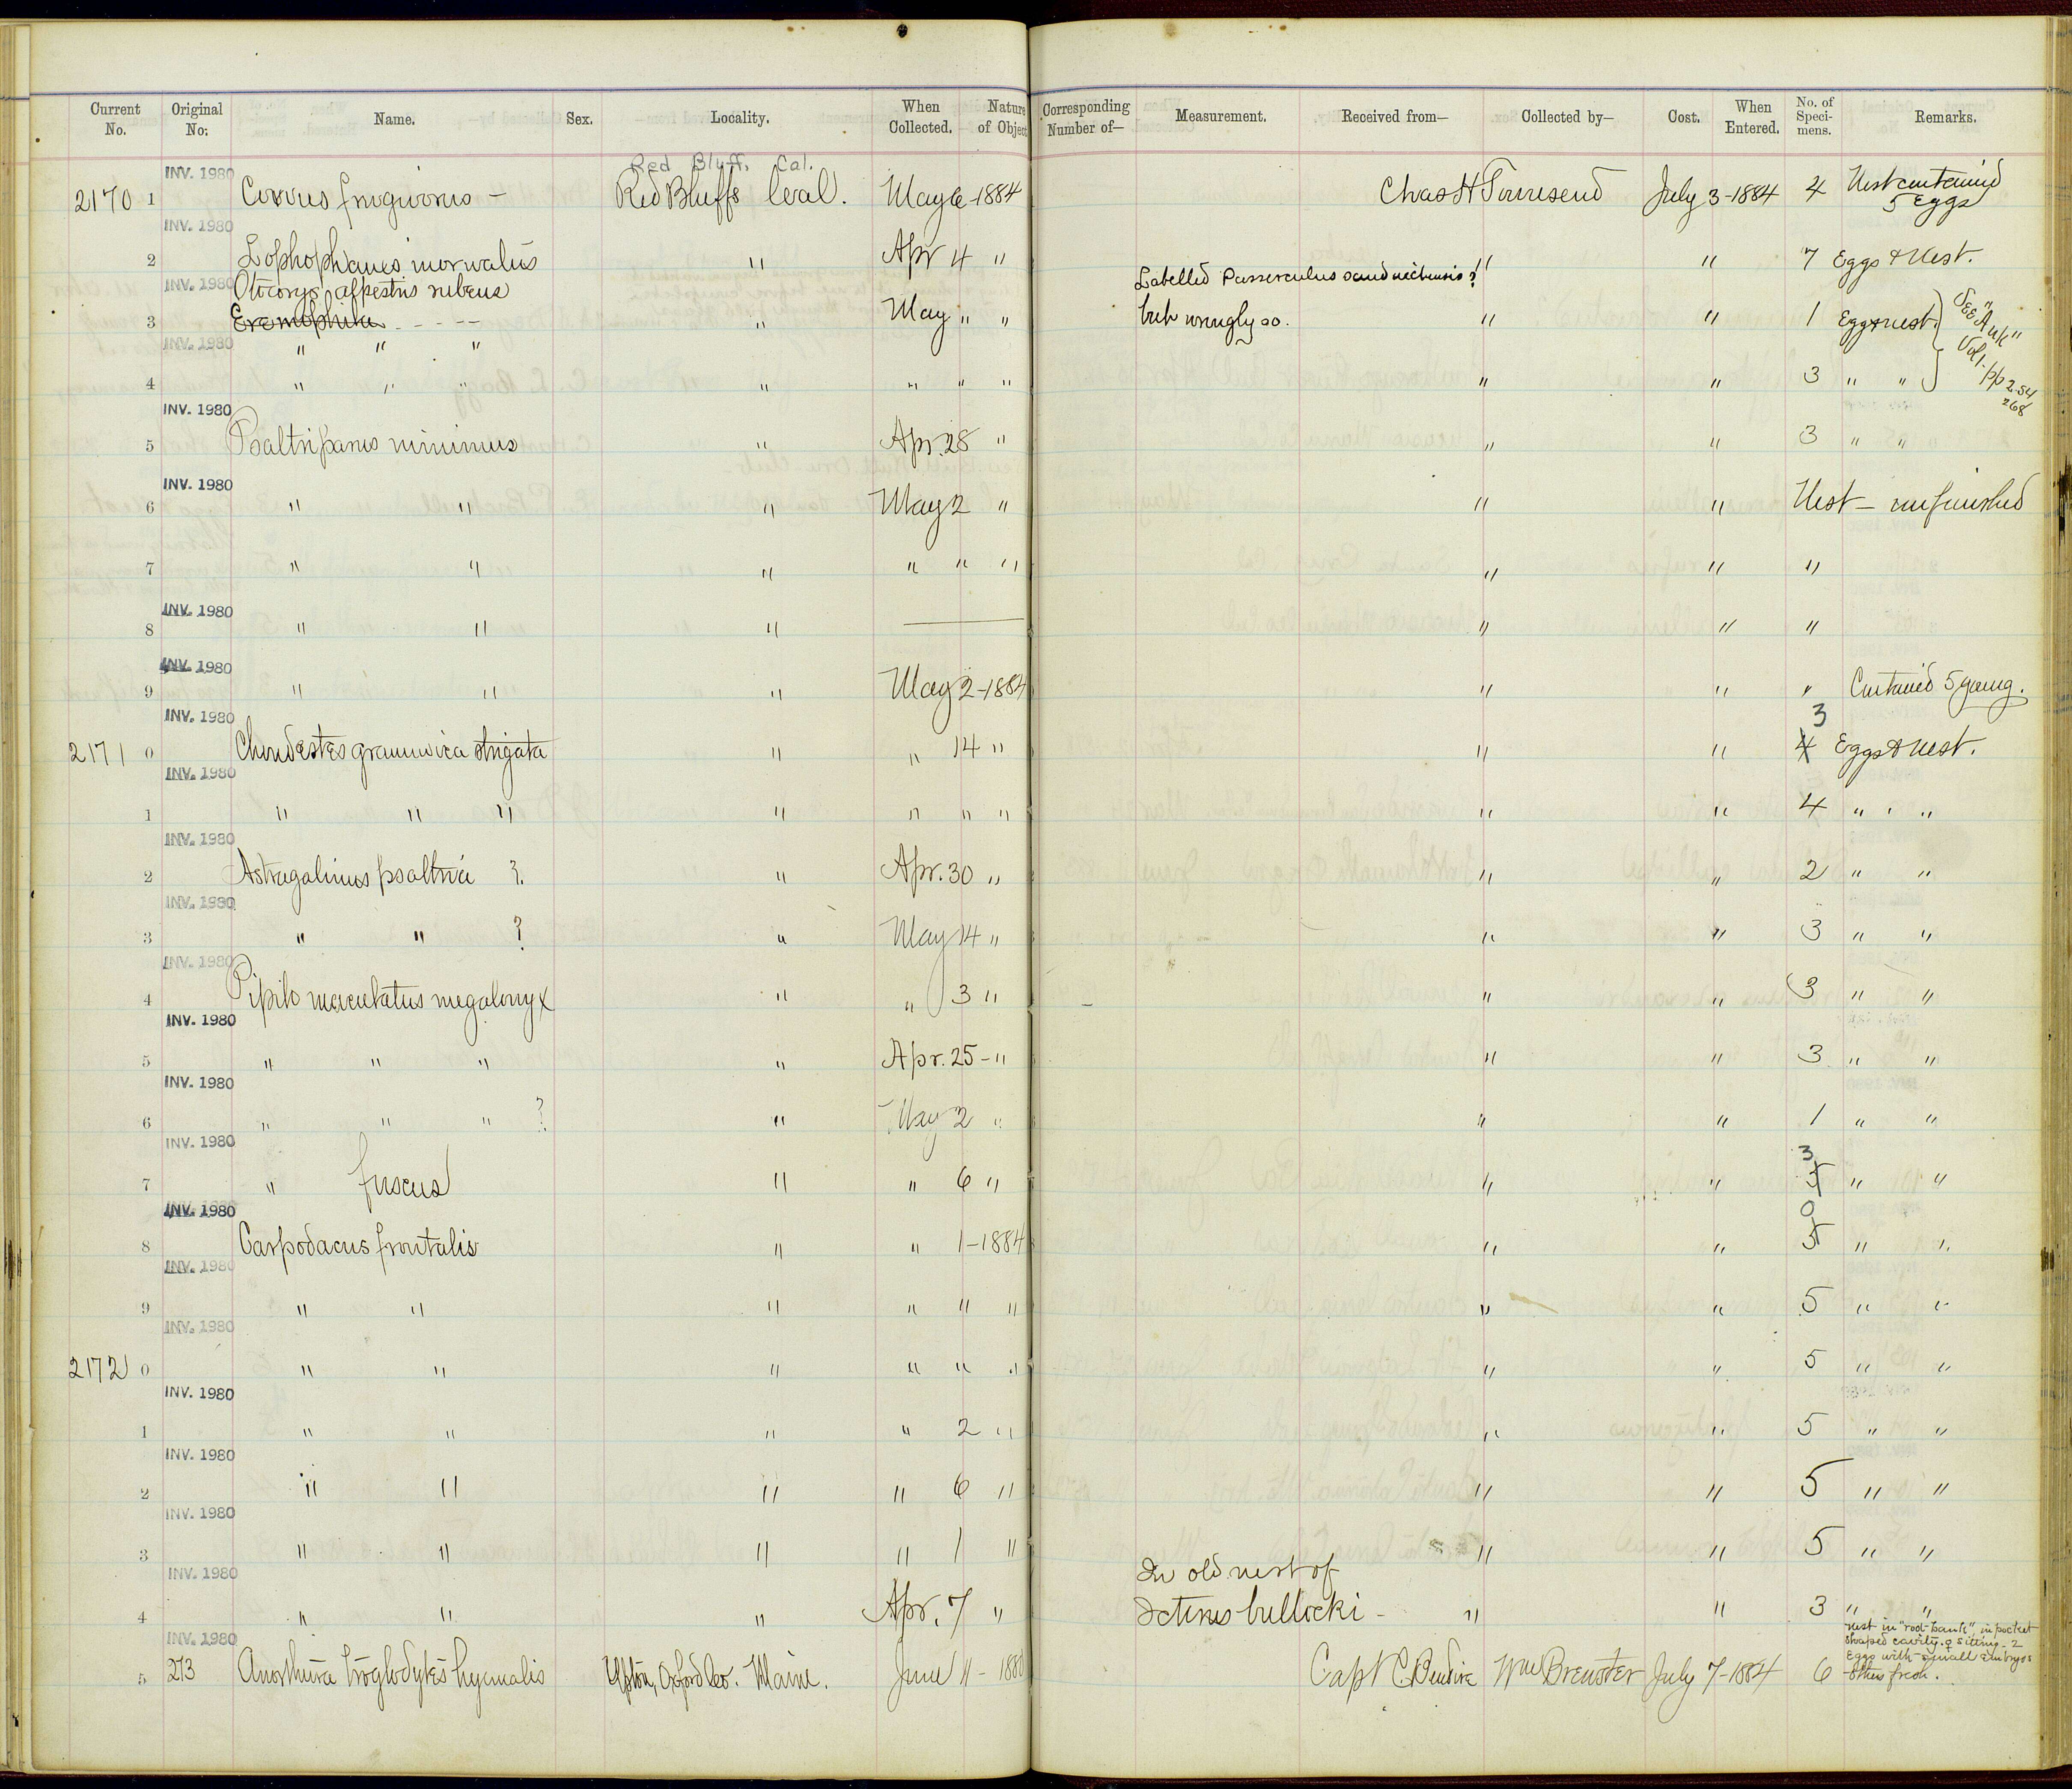 Current No. Original No. Name. Sex. Locality. When Collected. Nature of Object Corresponding Number of— Measurement. Received from— Collected by— Cost. When Entered. No. of Specimens. Remarks.
INV. 1980 Red Bluff. Cal.
2170 1 Corvus frugivorus – Red Bluffs Cal. May 6-1884 Chas H Townsend July 3-1884 4 Nest contained 5 Eggs
INV. 1980
2 Lophophanes inornatus " Apr 4 " " " 7 Eggs & Nest.
INV. 1980 Otocorys alpestris rubeus Labelled Passerculus sandwichensis?
3 Eremophila - - - - " May " " but wrongly so. " " 1 Egg & nest. See "Auk" Vol 1. pp 254 268
INV. 1980 " " "
4 " " " " " " " " " 3 " "
INV. 1980
5 Psaltriparus minimus " Apr. 28 " " " 3 " "
INV. 1980
6 " " " May 2 " " " Nest – unfinished
7 " " " " " " " " "
INV. 1980
8 " " " — " " "
INV. 1980
9 " " " May 2-1884 " " " Contained 5 young.
INV. 1980 3
2171 0 Chondestes grammica strigata " " 14 " " " 4 Eggs & Nest.
INV. 1980
1 " " " " " " " " " 4 " " "
INV. 1980
2 Astragalinus psaltria ? " Apr. 30 " " " 2 " "
INV. 1980
3 " " ? " May 14 " " " 3 " "
INV. 1980
4 Pipilo maculatus megalonyx " " 3 " " " 3 " "
INV. 1980
5 " " " " Apr. 25 – " " " 3 " "
INV. 1980
6 " " " ? " May 2 " " " 1 " "
INV. 1980 3
7 " fuscus " " 6 " " " " "
INV. 1980 0
8 Carpodacus frontalis " " 1-1884 " " 5 " "
INV. 1980
9 " " " " " " " " 5 " "
INV. 1980
2172 0 " " " " " " " " 5 " "
INV. 1980
1 " " " " 2 " " " 5 " "
INV. 1980
2 " " " " 6 " " " 5 " "
INV. 1980
3 " " " " 1 " " " 5 " "
INV. 1980 In old nest of
4 " " " Apr. 7 " Icterus bullocki – " " 3 " "
INV. 1980 nest in "root-bank", in pocket
shaped cavity. ♀ sitting – 2
Eggs with small embryos
5 273 Anorthura troglodytes hyemalis Upton, Oxford Co. Maine. June 11 – 1880 Capt C. Bendire Wm Brewster July 7-1884 6 others fresh.